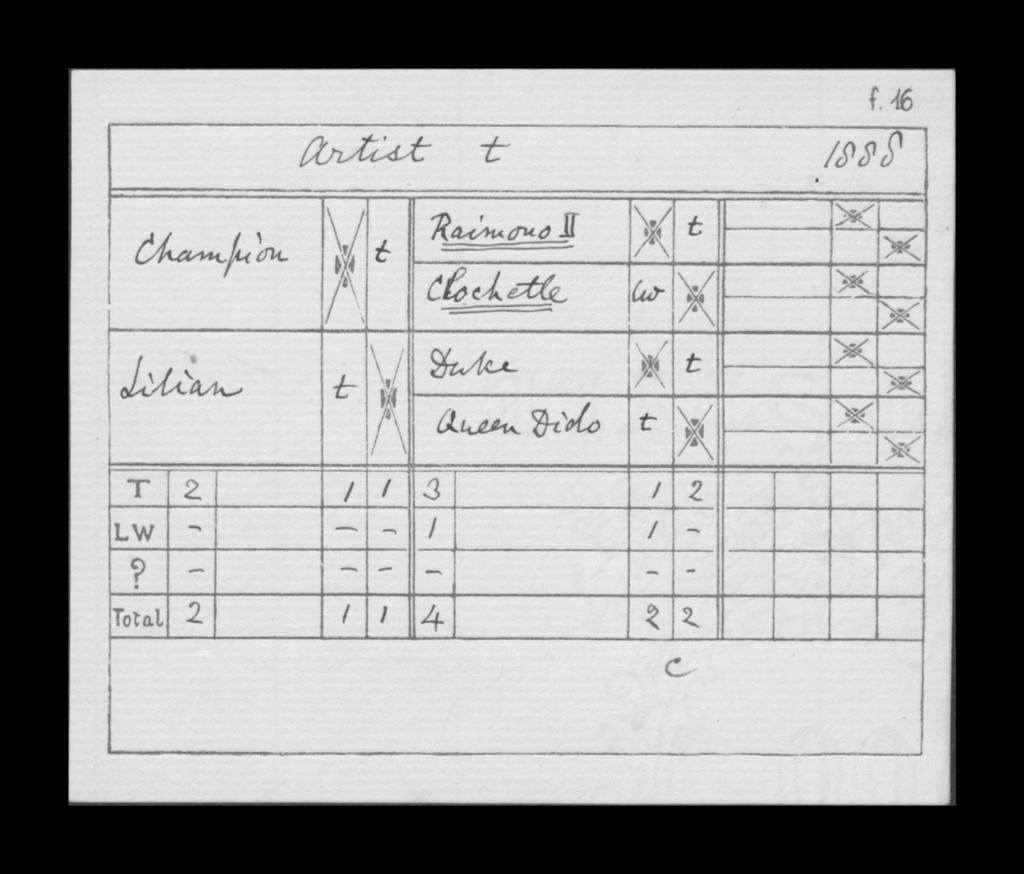 f. 16
Artist t 1888
Champion t
Raimono II t
Clochette lw
Lilian t
Duke t
Queen Dido t
T 2 1 1 3 1 2
LW - - - 1 1 -
? - - - - - -
Total 2 1 1 4 2 2
C